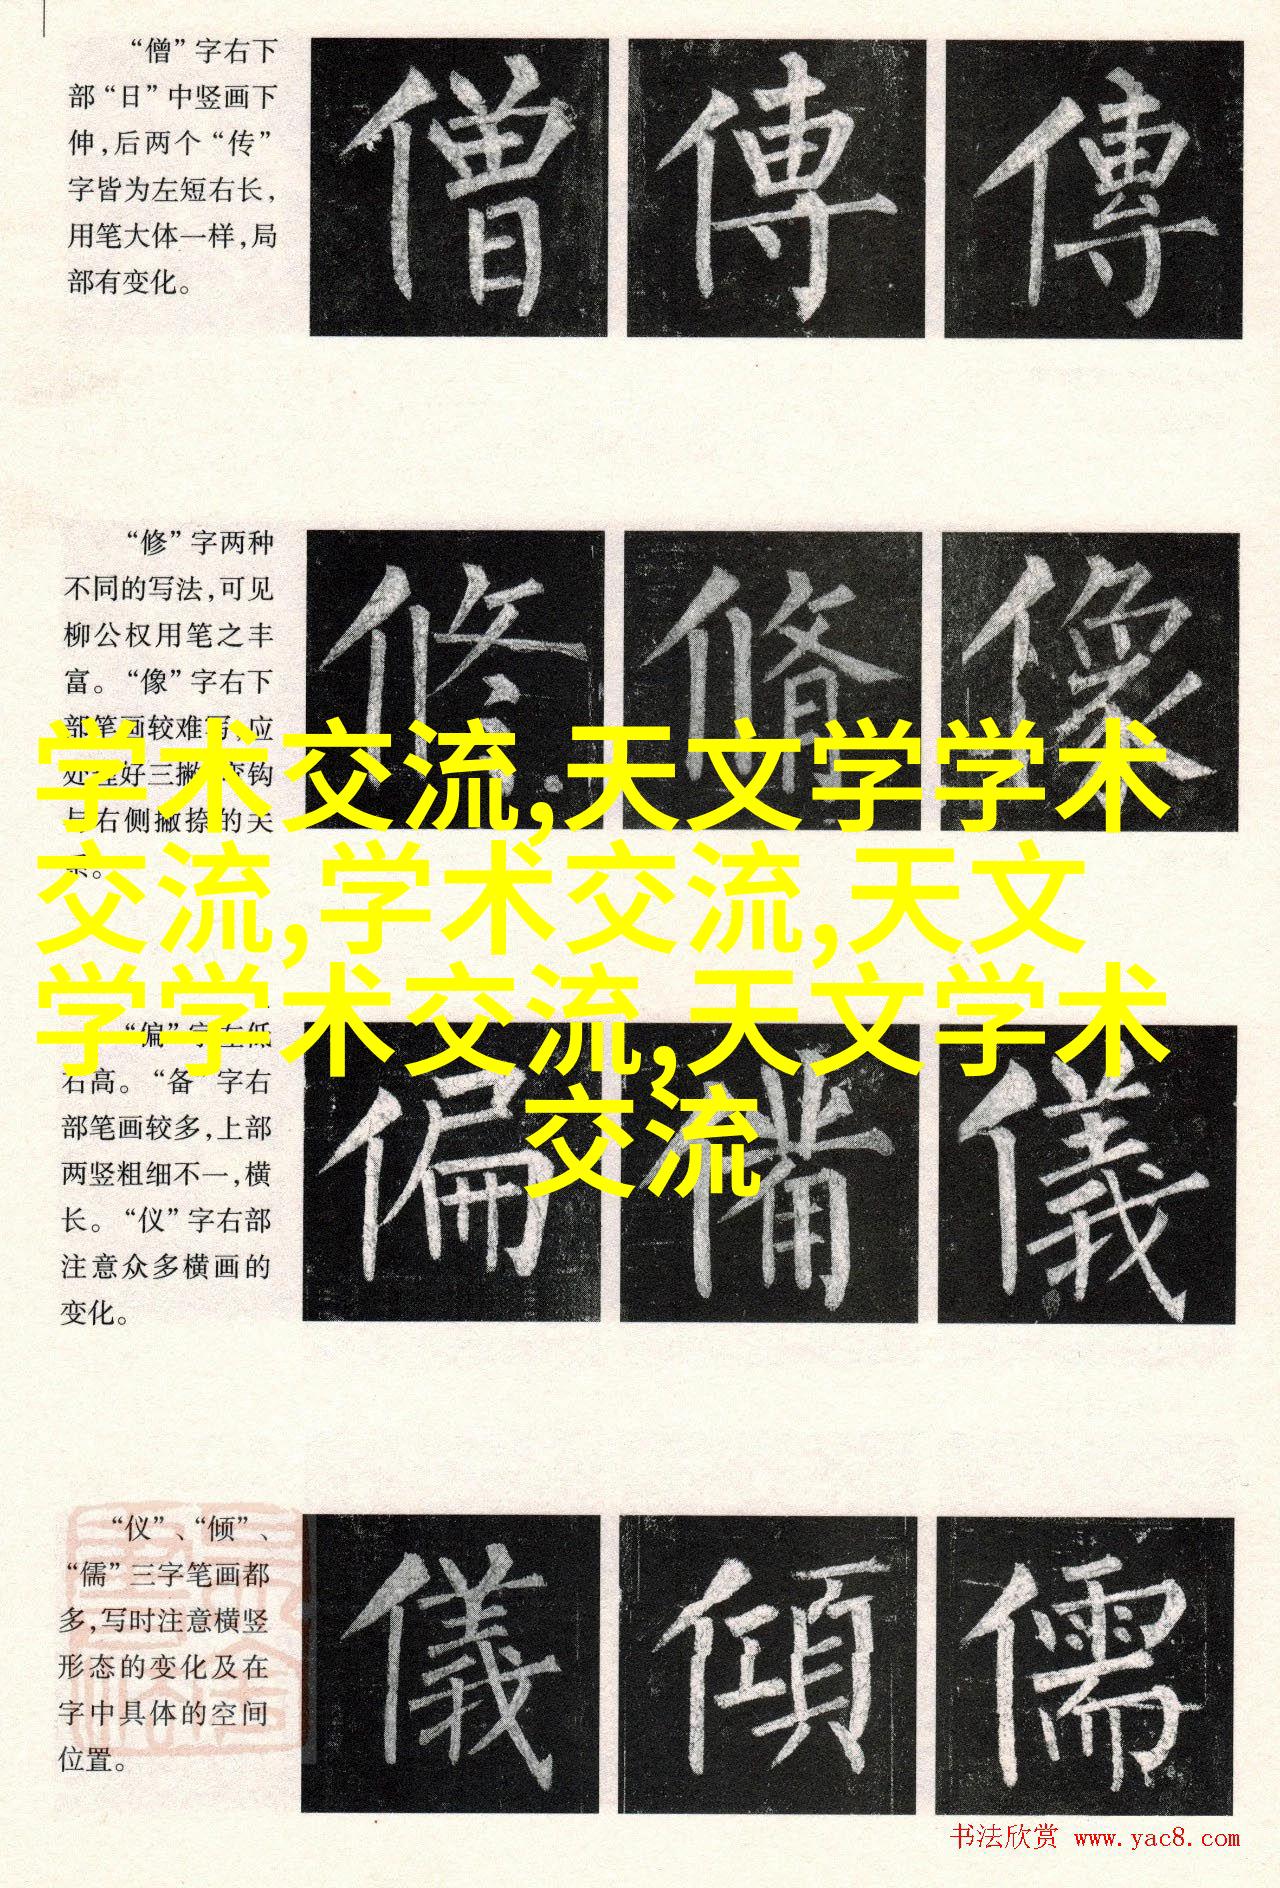 “僧”字右下
部“日”中竖画下
伸,后两个“传”
字皆为左短右长,
用笔大体一样,局
部有变化。
僧 傳 傳
“修”字两种
不同的写法,可见
柳公权用笔之丰
富。“像”字右下
部笔画较难写,应
处理好三撇、弯钩
与右侧撇捺的关
系。
修 脩 像
学术交流,天文学学术
交流,学术交流,天文
学学术交流,天文学术
交流
“偏”字左低
右高。“备”字右
部笔画较多,上部
两竖粗细不一,横
长。“仪”字右部
注意众多横画的
变化。
偏 備 儀
“仪”、“倾”、
“儒”三字笔画都
多,写时注意横竖
形态的变化及在
字中具体的空间
位置。
儀 傾 儒
书法欣赏 www.yac8.com